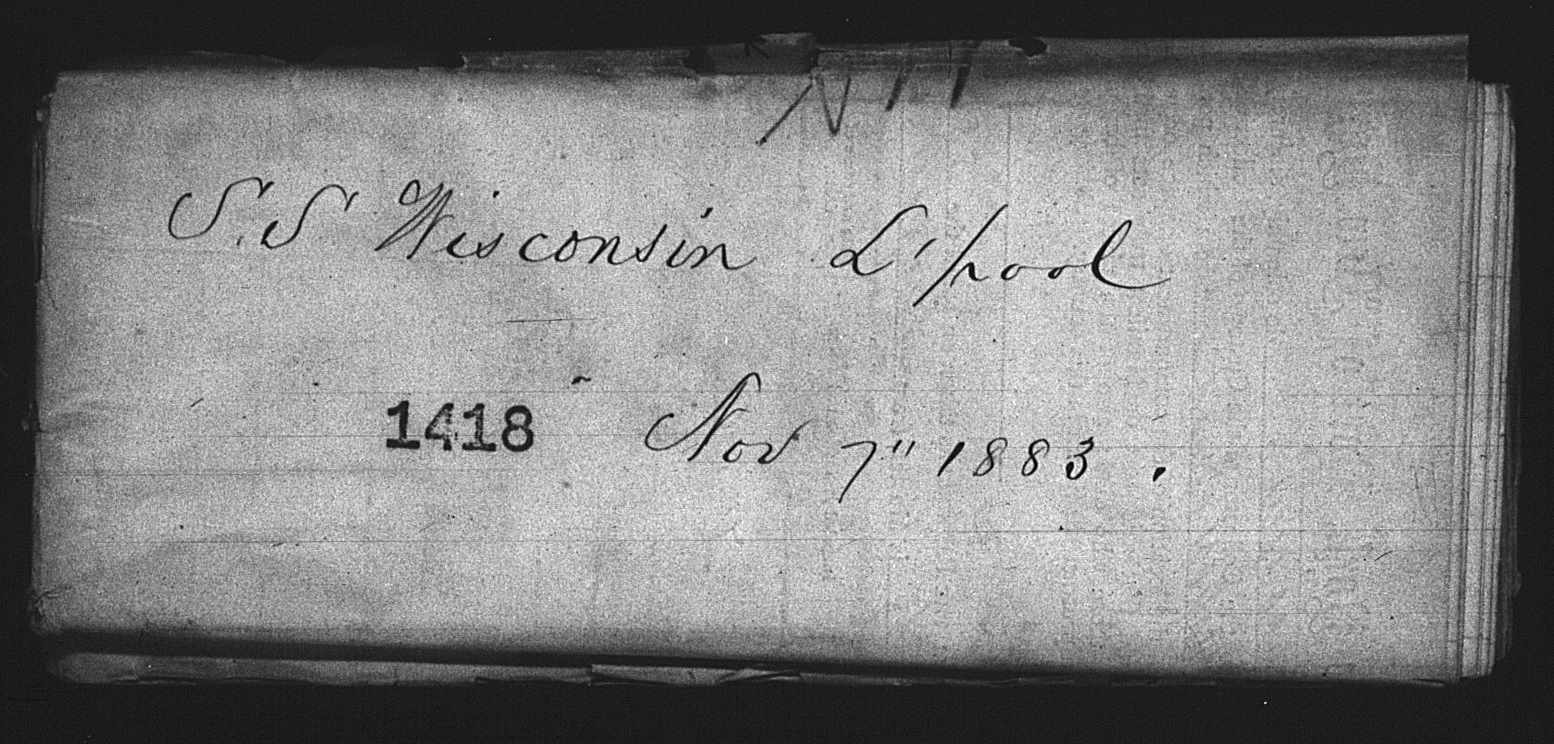 S.S Wisconsin L'pool
1418 Nov 7" 1883.